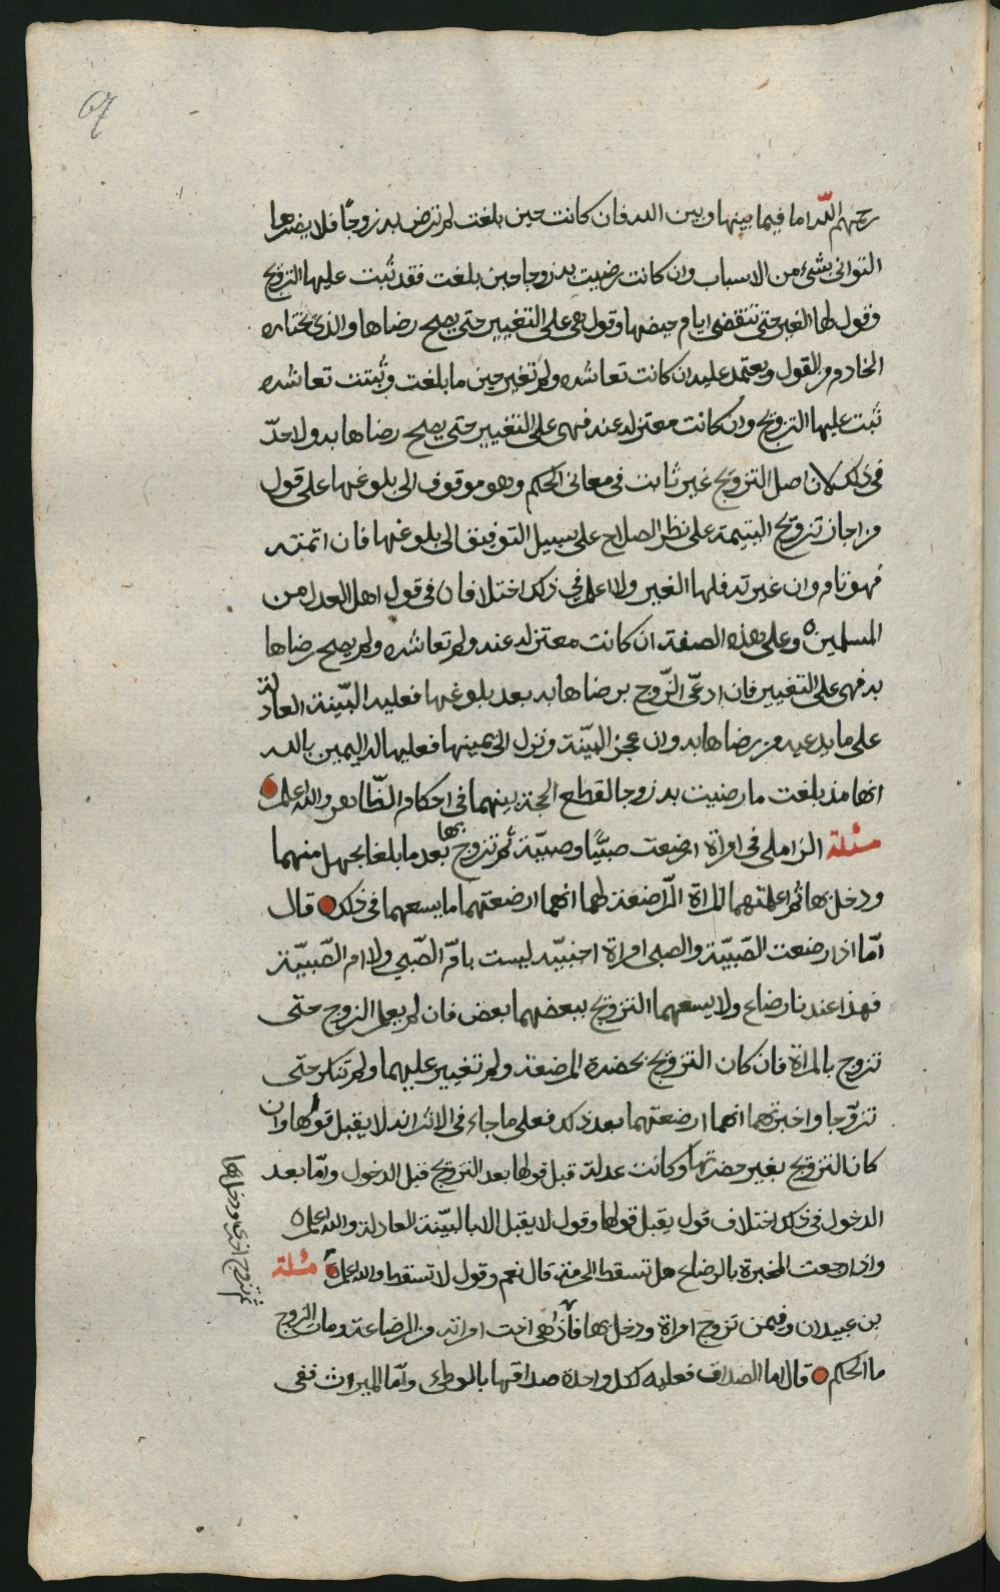 67
رحمهم الله اما فيما بينها وبين الله فان كانت حين بلغت لم ترض به زوجًا فلا يضرها
التوانى بشىء من الاسباب وان كانت رضيت به زوجا حين بلغت فقد ثبت عليها التزويج
وقول لها الغير حتى تنقضى ايام حيضها وقول هى على التغيير حتى يصح رضاها والذى نختاره
الخادم من القول ويعتمد عليه ان كانت تعاشره ولم تغير حين ما بلغت وثبتت تعاشره
ثبت عليها التزويج وان كانت معتزلة عنه فهى على التغيير حتى يصح رضاها به ولا حدّ
فى ذلك لان اصل التزويج غير ثابت فى معانى الحكم وهو موقوف الى بلوغها على قول
من اجاز تزويج اليتيمة على نظر الصلاح على سبيل التوقيف الى بلوغها فان اتمته
فهو تام وان غيرته فلها الغير ولا اعلم فى ذلك اختلافا فى قول اهل العدل من
المسلمين ه وعلى هذه الصفة ان كانت معتزلة عنه ولم تعاشره ولم يصح رضاها
به فهى على التغيير فان ادعّى الزّوج برضاها به بعد بلوغها فعليه البيّنة العادلة
على ما يدعيه من رضاها به وان عجز البيّنة ونزل الى يمينها فعليها له اليمين بالله
انها مذ بلغت ما رضيت به زوجا لقطع الحجة بينهما فى احكام الظّاهر والله اعلم
مسئلة الزاملى فى امراة ارضعت صبيًّا وصبيّة ثم تزوج بها بعد ما بلغا بجهل منهما
ودخل بها ثم اعلمتهما المراة الرّاضعة لهما انهما ارضعتهما ما يسعهما فى ذلك قال
امّا اذا رضعت الصّبيّة والصبى امراة اجنبيّه ليست بامّ الصّبي ولا ام الصّبيّة
فهذا عندنا رضاع ولا يسعهما التزويج ببعضهما بعض فان لم يعلم الزوج حتّى
تزوج بالمراة فان كان التزويج بحضرة المرضعة ولم تغيير عليهما ولم تنكر حتّى
تزوّجا واخبرتهما انهما ارضعتهما بعد ذلك فعلى ما جاء فى الاثر انه لا يقبل قولها وان
كان التزويج بغير حضرتها وكانت عدلة قبل قولها بعد التزويج قبل الدخول وامّا بعد
الدخول فى ذلك اختلاف قول يقبل قولها وقول لا يقبل الا بالبيّنة العادلة والله اعلم ه
واذا رجعت المخبرة بالرضاع هل تسقط الحرمة قال نعم وقول لا تسقط والله اعلم مسئلة
بن عبيدان وفيمن تزوج امراة ودخل بها فاذا هى اخت امراته من الرضاعة ومات الزوج
ما الحكم قال اما الصداق فعليه لكل واحدة صداقها بالوطى وامّا الميراث ففى
ثم تزوج اخرى ودخل بها